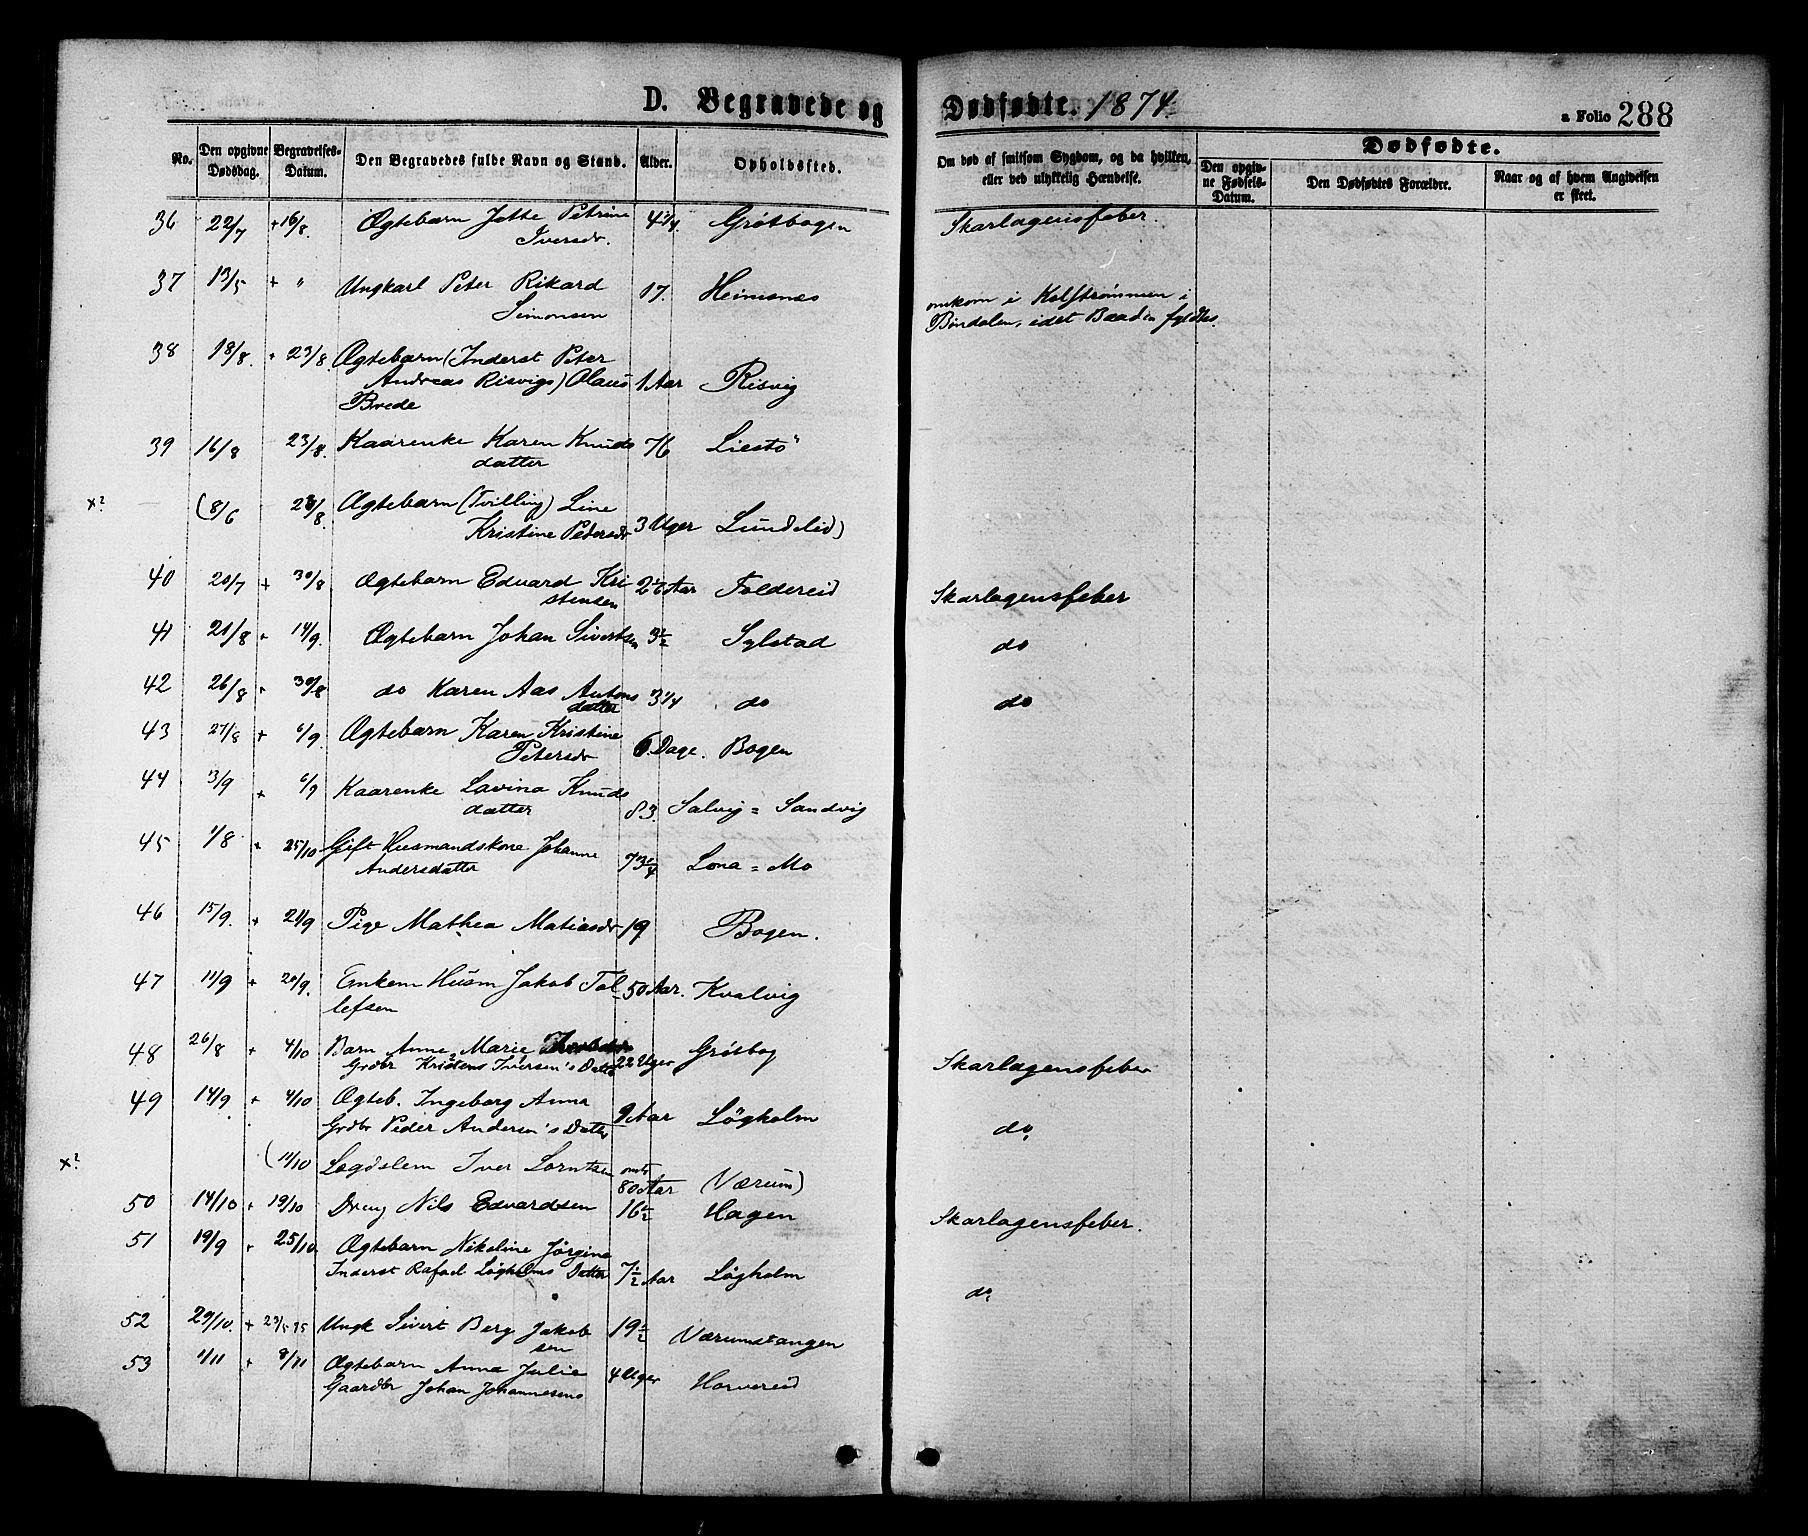 D. Begravede og Dødfødte. 1874.
a Folio 288
No.
Den opgivne Dødsdag.
Begravelses-Datum.
Den Begravedes fulde Navn og Stand.
Alder.
Opholdssted.
Om død af smitsom Sygdom, og da hvilken, eller ved ulykkelig Hændelse.
Dødfødte.
Den opgivne Fødsels-Datum.
Den Dødfødtes Forældre.
Naar og af hvem Angivelsen er skeet.
36 22/7 + 16/8. Ægtebarn Jotte Petrine 4 3/4. Grötbogen Skarlagensfeber.
Iversdr.
37 13/5 + " Ungkarl Peter Rikard 17. Heimsnes omkom i Kolstrømmen i
Simonsen Bindalen, idet Baaden fyldtes.
38 18/8. + 23/8. Ægtebarn (Inderst Peter
Andreas Risvigs) Olaus 1 Aar Risvig
Brede
39 16/8 23/8. Kaarenke Karen Knuds 76 Liestö
datter
x? (8/6 23/8 Ægtebarn (Tvilling) Line
Kristine Pedersdr 3 Uger Lundlid)
40 20/7 + 30/8 Ægtebarn Edvard Kri Aar Foldereid Skarlagensfeber
stensen
41 21/8 + 14/9. Ægtebarn Johan Sivertsen 3 1/2 Sylstad do
42 26/8 + 30/8 do Karen Aas Antons 3 1/4 do do
datter
43 27/8 + 6/9. Ægtebarn Karen Kristine
Petersdr 6. Dage. Bogen
44 3/9 + 6/9 Kaarenke Lavina Knuds
datter 83. Salvig = Sandvig
45 1/8 + 25/10 Gift Husmandskone Johanne
Andersdatter 73 3/4 Lona = Mo
46 15/9. + 21/9 Pige Mathea Matiasdr 19 Bogen.
47 11/9 + 20/9. Enkem Husm Jakob Tol 50 Aar. Kvalvig
lefsen
48 26/8 + 4/10 Barn Anne Marie Grötbog
Grdbr Kristens Iversen's Datter 22 Uger Skarlagensfeber
49 14/9 + 4/10 Ægteb. Ingeborg Anna
Grdbr Peder Andersen's Datter 9 Aar Lögholm do.
x? (11/10 Lægdslem Iver Lorntsen omtr
80 Aar (Værum)
50 14/10 + 19/10 Dreng Nils Edvardsen 16 1/2 Hagen Skarlagensfeber.
51 19/9 + 25/10. Ægtebarn Nikoline Jørgine
Inderst Rafael Lögholms Datter 7 1/2 Aar Lögholm do.
52 29/10. + 23/5 75 Ungk Sivert Berg Jakob 19 1/2 Værumstangen
sen
53 1/11 + 8/11 Ægtebarn Anna Julie
Gaardbr Johan Johannesens 4 Uger Horvereid